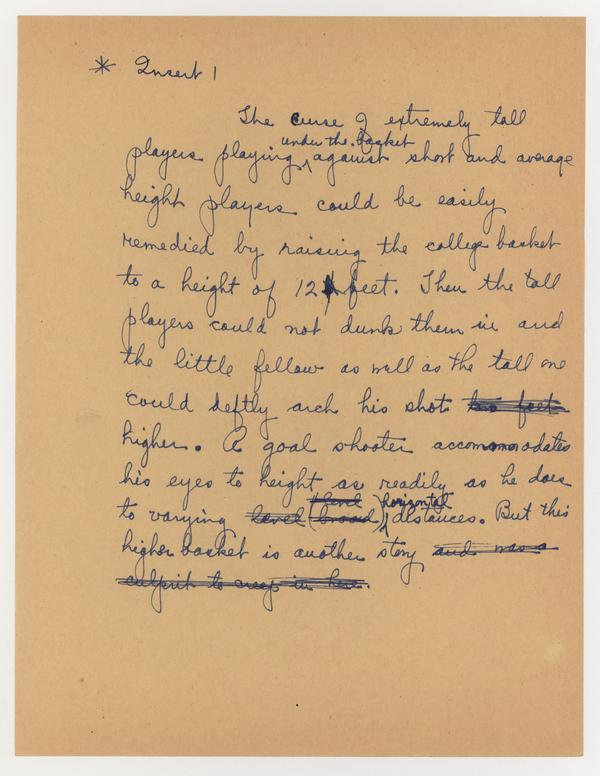 * Insert 1
The curse of extremely tall
under the basket
players playing ^ against short and average
height players could be easily
remedied by raising the college basket
to a height of 12 feet. Then the tall
players could not dunk them in and
the little fellow as well as the tall one
could deftly arch his shot two feet
higher. A goal shooter accommodates
his eyes to height as readily as he does
to varying level (broad) ^ horizontal distances. But this
higher basket is another story and was a
culprit to creep in here.